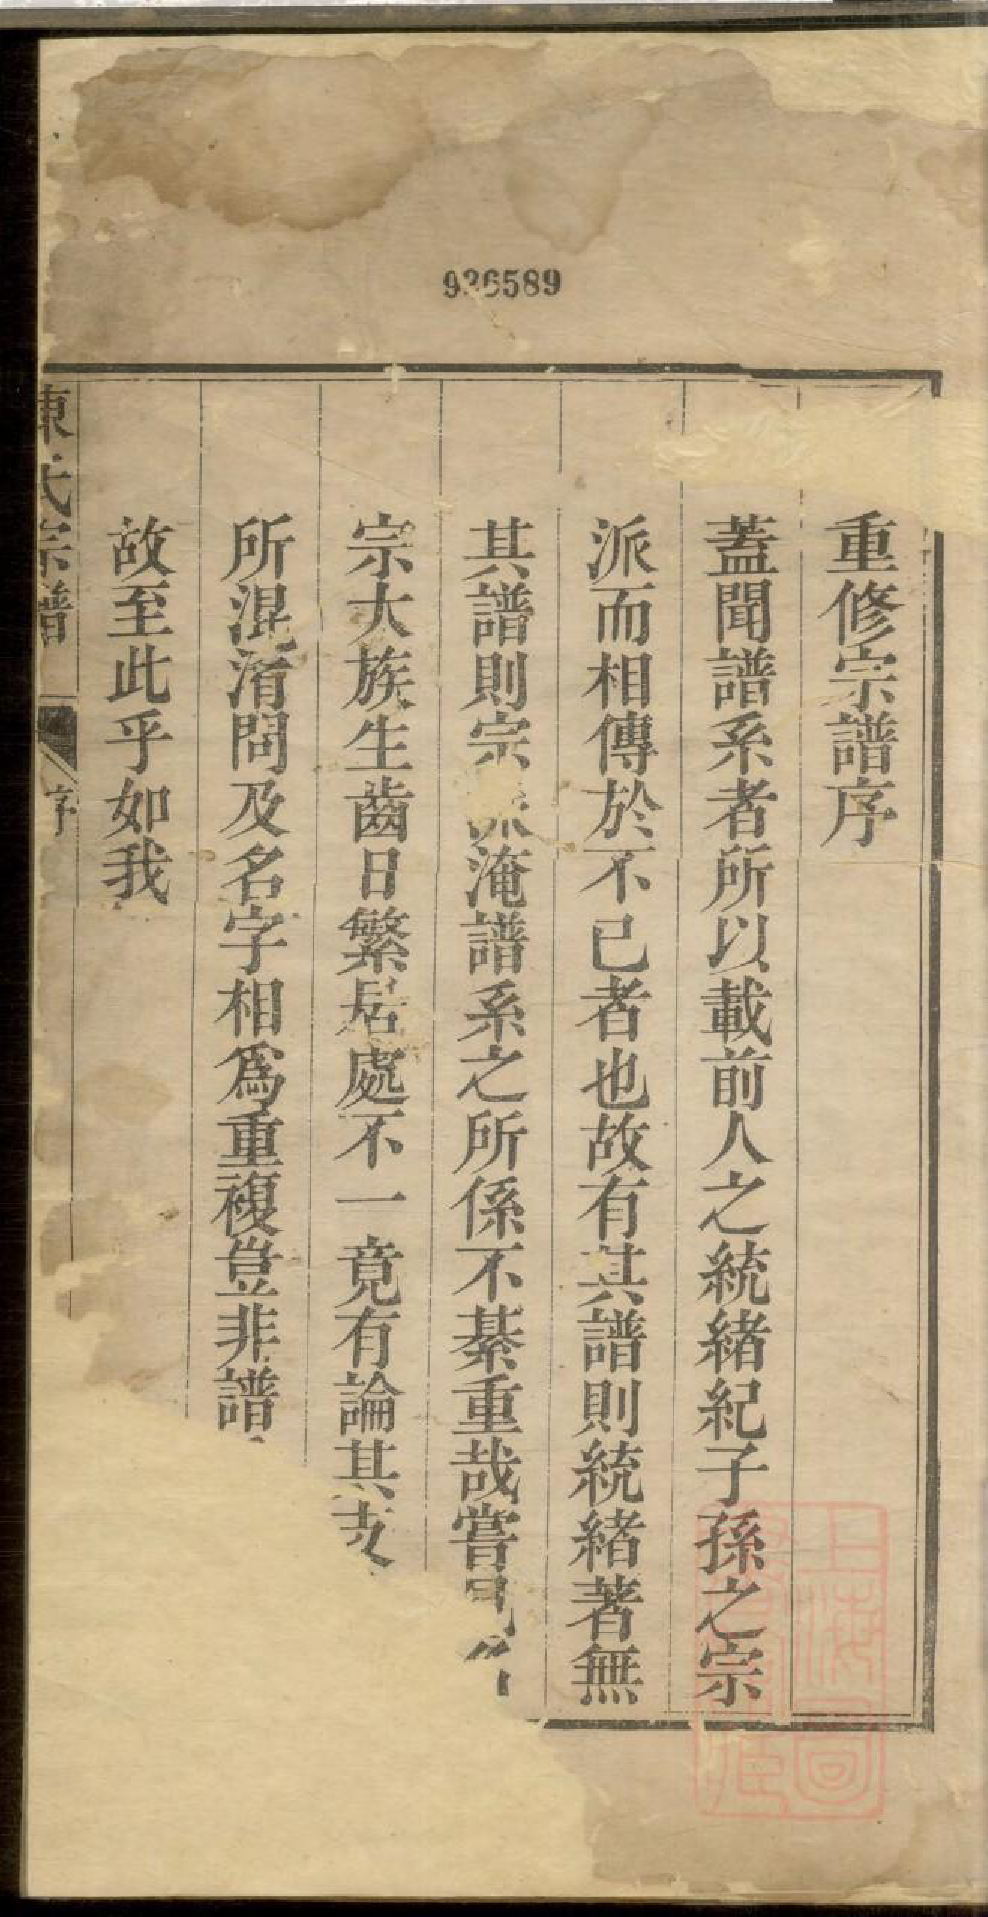 936589
重修宗譜序
蓋聞譜系者所以載前人之統緒紀子孫之宗
派而相傳於不已者也故有其譜則統緒著無
其譜則宗淹譜系之所係不綦重哉嘗見
宗大族生齒日繁居處不一竟有論其支
所混淆問及名字相爲重複豈非譜
故至此乎如我
陳氏宗譜
序
上海圖書館藏